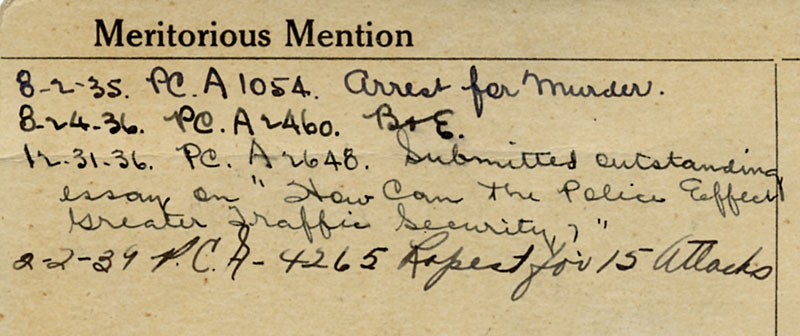 Meritorious Mention
8-2-35. PC. A 1054. Arrest for Murder.
8-24-36. PC. A 2460. B+E.
12-31-36. PC. A 2648. Submitted outstanding
essay on "How Can the Police Effect
Greater Traffic Security,"
2-2-39 P.C. A-4265 Rapest for 15 Attacks